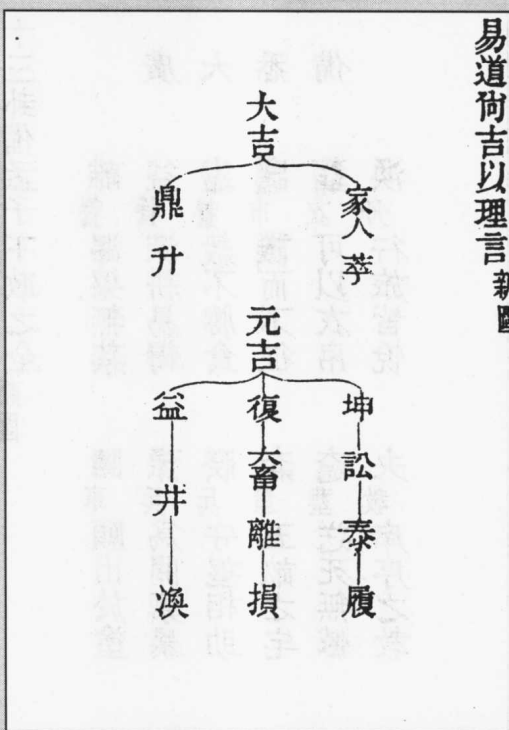 易道尙吉以理言 新圖
大吉
家人 萃
鼎 升
元吉
坤 訟 泰 履
復 畜 離 損
益 井 渙